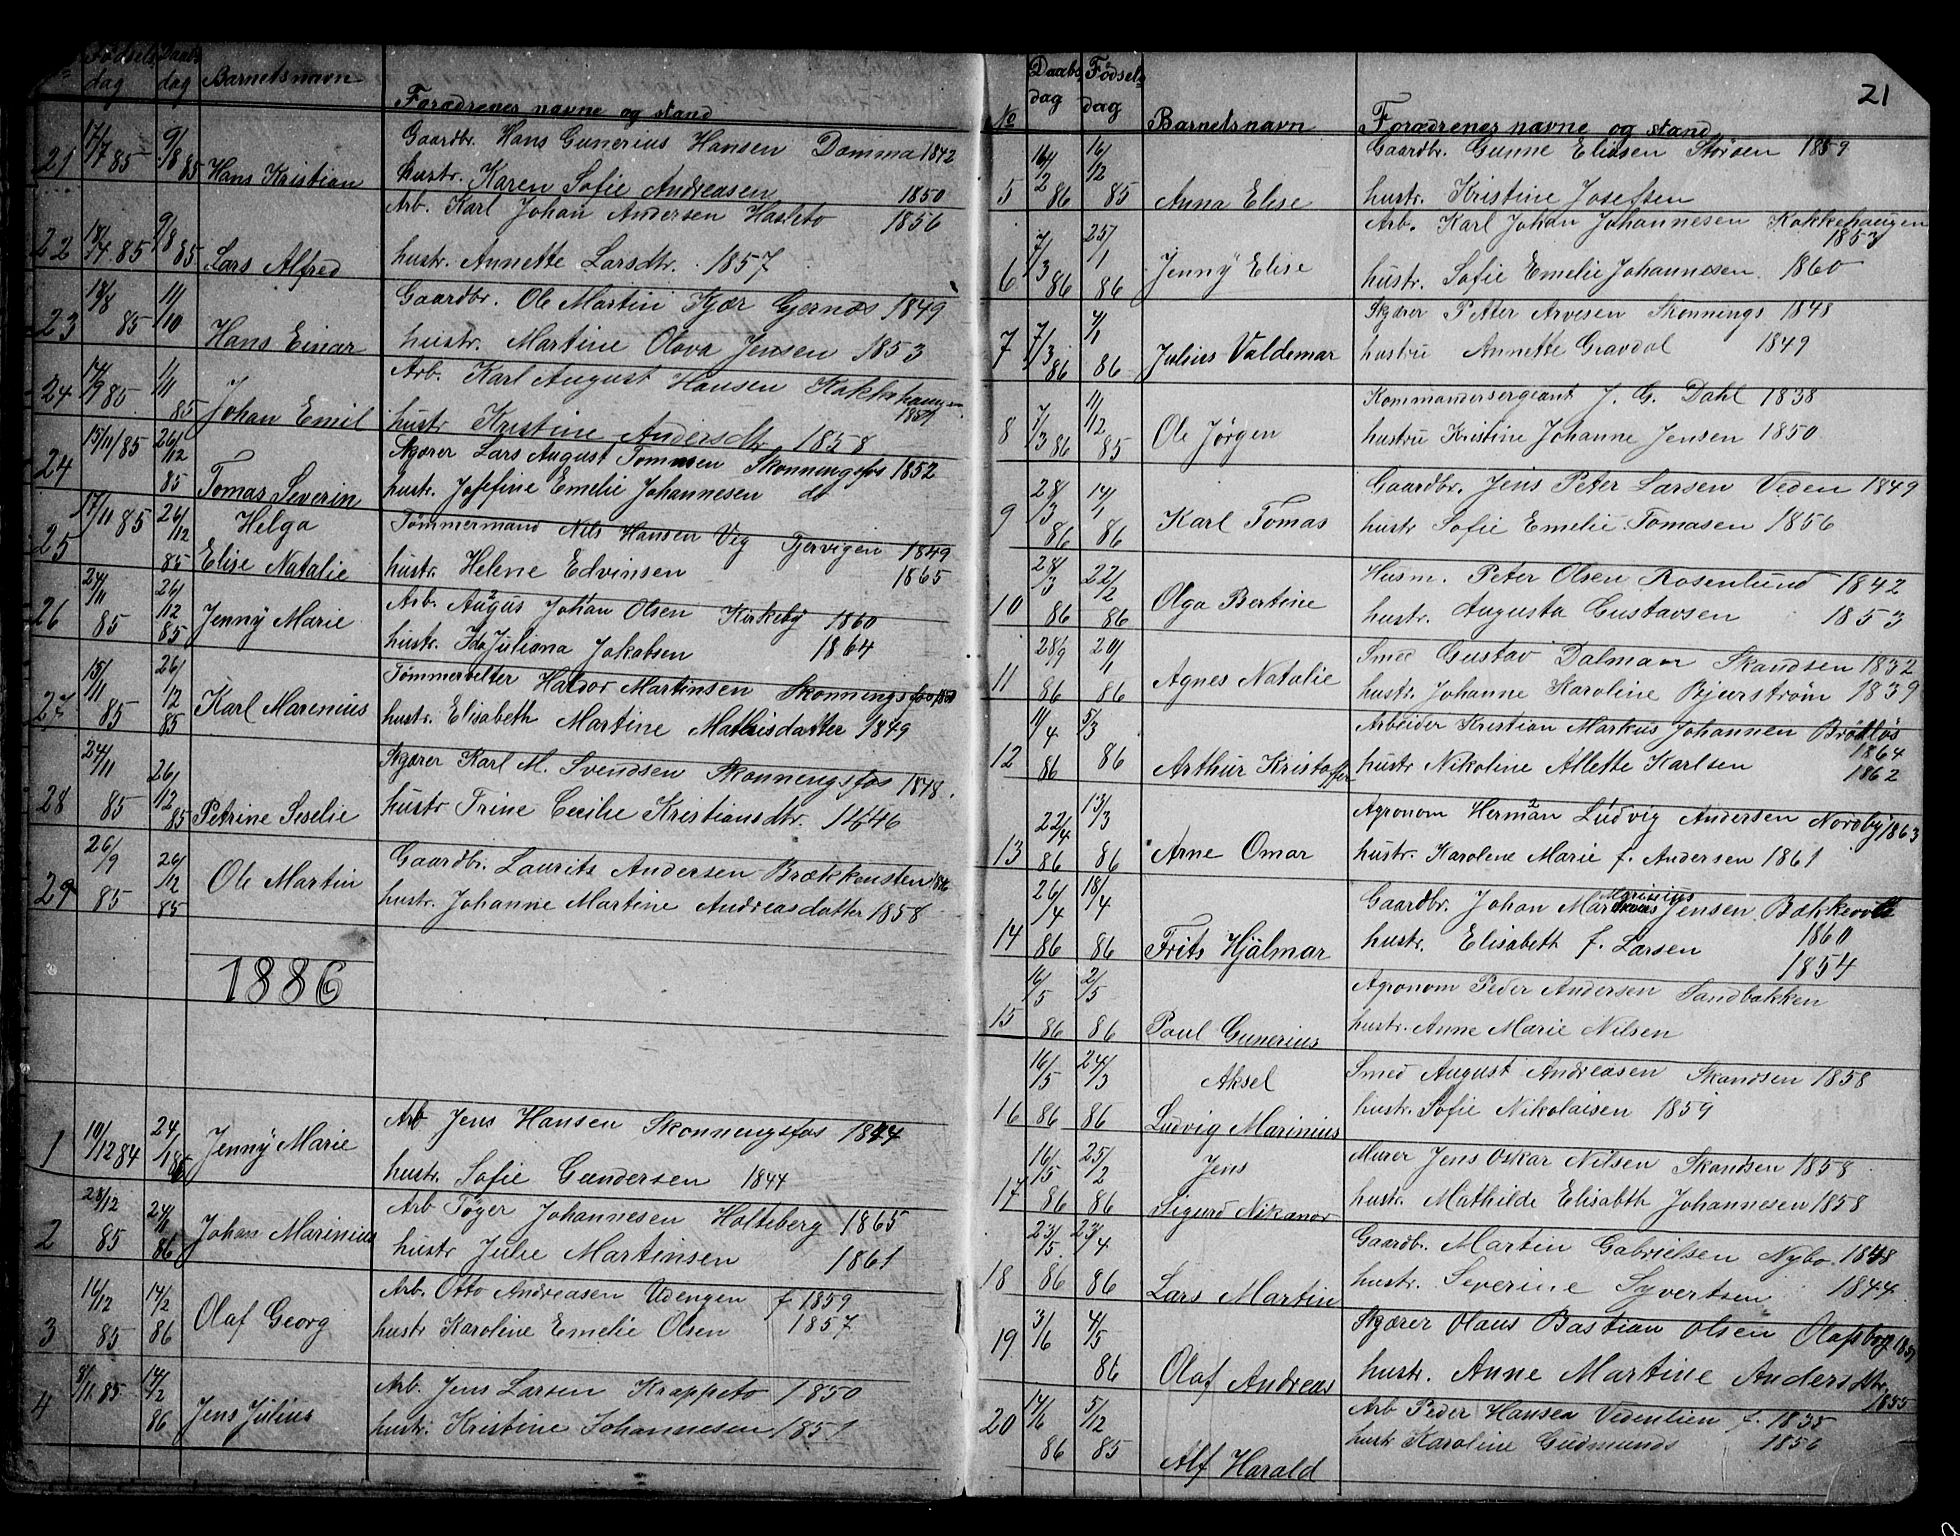 Fødsels Daabs
dag dag Barnetsnavn Forædrenes navne og stand
21 17/7 85 9/8 85 Hans Kristian Gaardbr. Hans Gunerius Hansen Damma 1842
hustr. Karen Sofie Andreasen 1850
22 18/4 85 9/8 85 Lars Alfred Arb. Karl Johan Andersen Hasleto 1856
hustr. Annette Larsdtr. 1857
23 18/8 85 11/10 Hans Einar Gaardbr. Ole Martin Kjær Gjernæs 1849
hustr. Martine Olava Jensen 1853
24 14/9 85 1/11 85 Johan Emil Arb. Karl August Hansen Kakkehaugen
hustr Kristine Andersdtr. 1858
24 15/11 85 26/12 85 Tomas Severin Skjærer Lars August Tommesen Skonningsfos 1852
hustr. Josefine Emelie Johannesen do
25 17/11 85 26/12 85 Helga Tømmermand Nils Hansen Vig Tjervigen 1849
Elise Natalie hustr. Helene Edvinsen 1865
26 24/11 85 26/12 85 Jenny Marie Arb. August Johan Olsen Kirkeby 1860
hustr. Ida Juliana Jakobsen 1864
27 15/11 85 26/12 85 Karl Marenius Tømmervelter Haldor Martinsen Skonningsfos
hustr. Elisabeth Martine Mathisdatter 1849
28 24/11 85 26/12 85 Petrine Seselie Skjærer Karl M. Svendsen Skonnengsfos 1848
hustr Trine Cecilie Kristiansdtr. 1846
29 26/9 85 26/12 85 Ole Martin Gaardbr. Laurits Andersen Brækkensten
hustr. Johanne Martine Andreasdatter 1858
1886
1 10/12 84 24/1 86 Jenny Marie Arb Jens Hansen Skonnengsfos 1844
hustr. Sofie Gundersen 1844
2 28/12 85 24/1 86 Johan Marinius Arb Tøger Johannesen Holteberg 1865
hustr Julie Martinsen 1861
3 16/12 85 14/2 86 Olaf Georg Arb. Otto Andreasen Udengen f 1859
hustr Karoline Emelie Olsen 1857
4 8/11 85 14/2 86 Jens Julius Arb. Jens Larsen Krappeto 1850
hustr. Kristine Johannesen 1851
21
No Daabs dag Fødsels dag Barnetsnavn Forædrenes navne og stand
5 14/2 86 16/12 85 Anna Elise Gaardbr. Gunne Eliasen Strøsen 1859
hustr. Kristine Josefsen
6 7/3 86 25/1 86 Jenny Elise Arb. Karl Johan Johannesen Kakkehaugen
1853
hustr. Sofie Emelie Johannesen. 1860
7 7/3 86 4/1 86 Julius Valdemar Skjærer Petter Arvesen Skonnings 1848
hustru Annette Gravdal 1849
8 7/3 86 11/12 85 Ole Jørgen Kommandersergeant J. G. Dahl 1838
hustru Kristine Johanne Jensen 1850
9 28/3 86 14/1 86 Karl Tomas Gaardbr. Jens Peter Larsen Veden 1849
hustr Sofie Emelie Tomasen 1856
10 28/3 86 22/2 86 Olga Bertine Husm. Peter Olsen Rosenlund 1842
hustr. Augusta Gustavsen 1853
11 28/9 86 20/1 86 Agnes Natalie Smed Gustav Dalmaar Skandsen 1832
hustr. Johanne Karoline Bjurstrøm 1839
12 11/4 86 5/3 86 Arthur Kristoffer Arbeider Kristian Markus Johannen Brødløs
1864
hustr Nikoline Allette Karlsen 1862
13 22/4 86 13/3 86 Arne Omar Agronom Herman Ludvig Andersen Nordby 1863
hustr. Karolene Marie f. Andersen 1861
14 26/4 86 18/4 86 Frits Hjalmar Gaardbr. Johan Marinius Jensen Bakkevold
1860
hustr. Elisabeth f. Larsen 1854
15 16/5 86 2/5 86 Paul Gunerius Agronom Peder Andersen Sandbakken
hustr. Anne Marie Nilsen
16 16/5 86 24/3 86 Aksel Smed August Andreasen Skandsen 1858
Ludvig Marinius hustr. Sofie Nikolaisen 1859
17 16/5 86 25/2 86 Jens Murer Jens Oskar Nilsen Skandsen 1858
Sigurd Nikanor hustr. Mathilde Elisabth Johannesen 1858
18 23/5 86 23/4 86 Lars Martin Gaardb. Martin Gabrielsen Nybo. 1848
hustr. Severine Syvertsen 1844
19 3/6 4/5 86 Olaf Andreas Skjærer Olaus Bastian Olsen Olafsborg
hustr. Anne Martine Andersdtr.
1855
20 14/6 86 5/12 85 Alf Harald Arb Peder Hansen Vedenlien f. 1835
hustr Karoline Gudmunds 1856